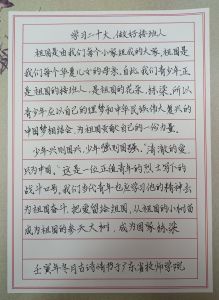 学习二十大,做好接班人
祖国是由我们每个小家组成的大家,祖国是
我们每个华夏儿女的母亲。自此,我们青少年正
是祖国的接班人,是祖国的花朵、栋梁,所以
青少年应以自己的理梦和中华民族伟大复兴的
中国梦相结合,为祖国贡献自己的一份力量。
少年兴则国兴,少年强则国强。"清澈的爱,
只为中国。"这是一位正值青年的烈士写下的
战斗口号,我们当代青年也应学习他的精神去
为祖国奋斗,把爱留给祖国,从祖国的小树苗
成为祖国的参天大树,成为国家栋梁
壬寅年冬月 书于广东省技师学院